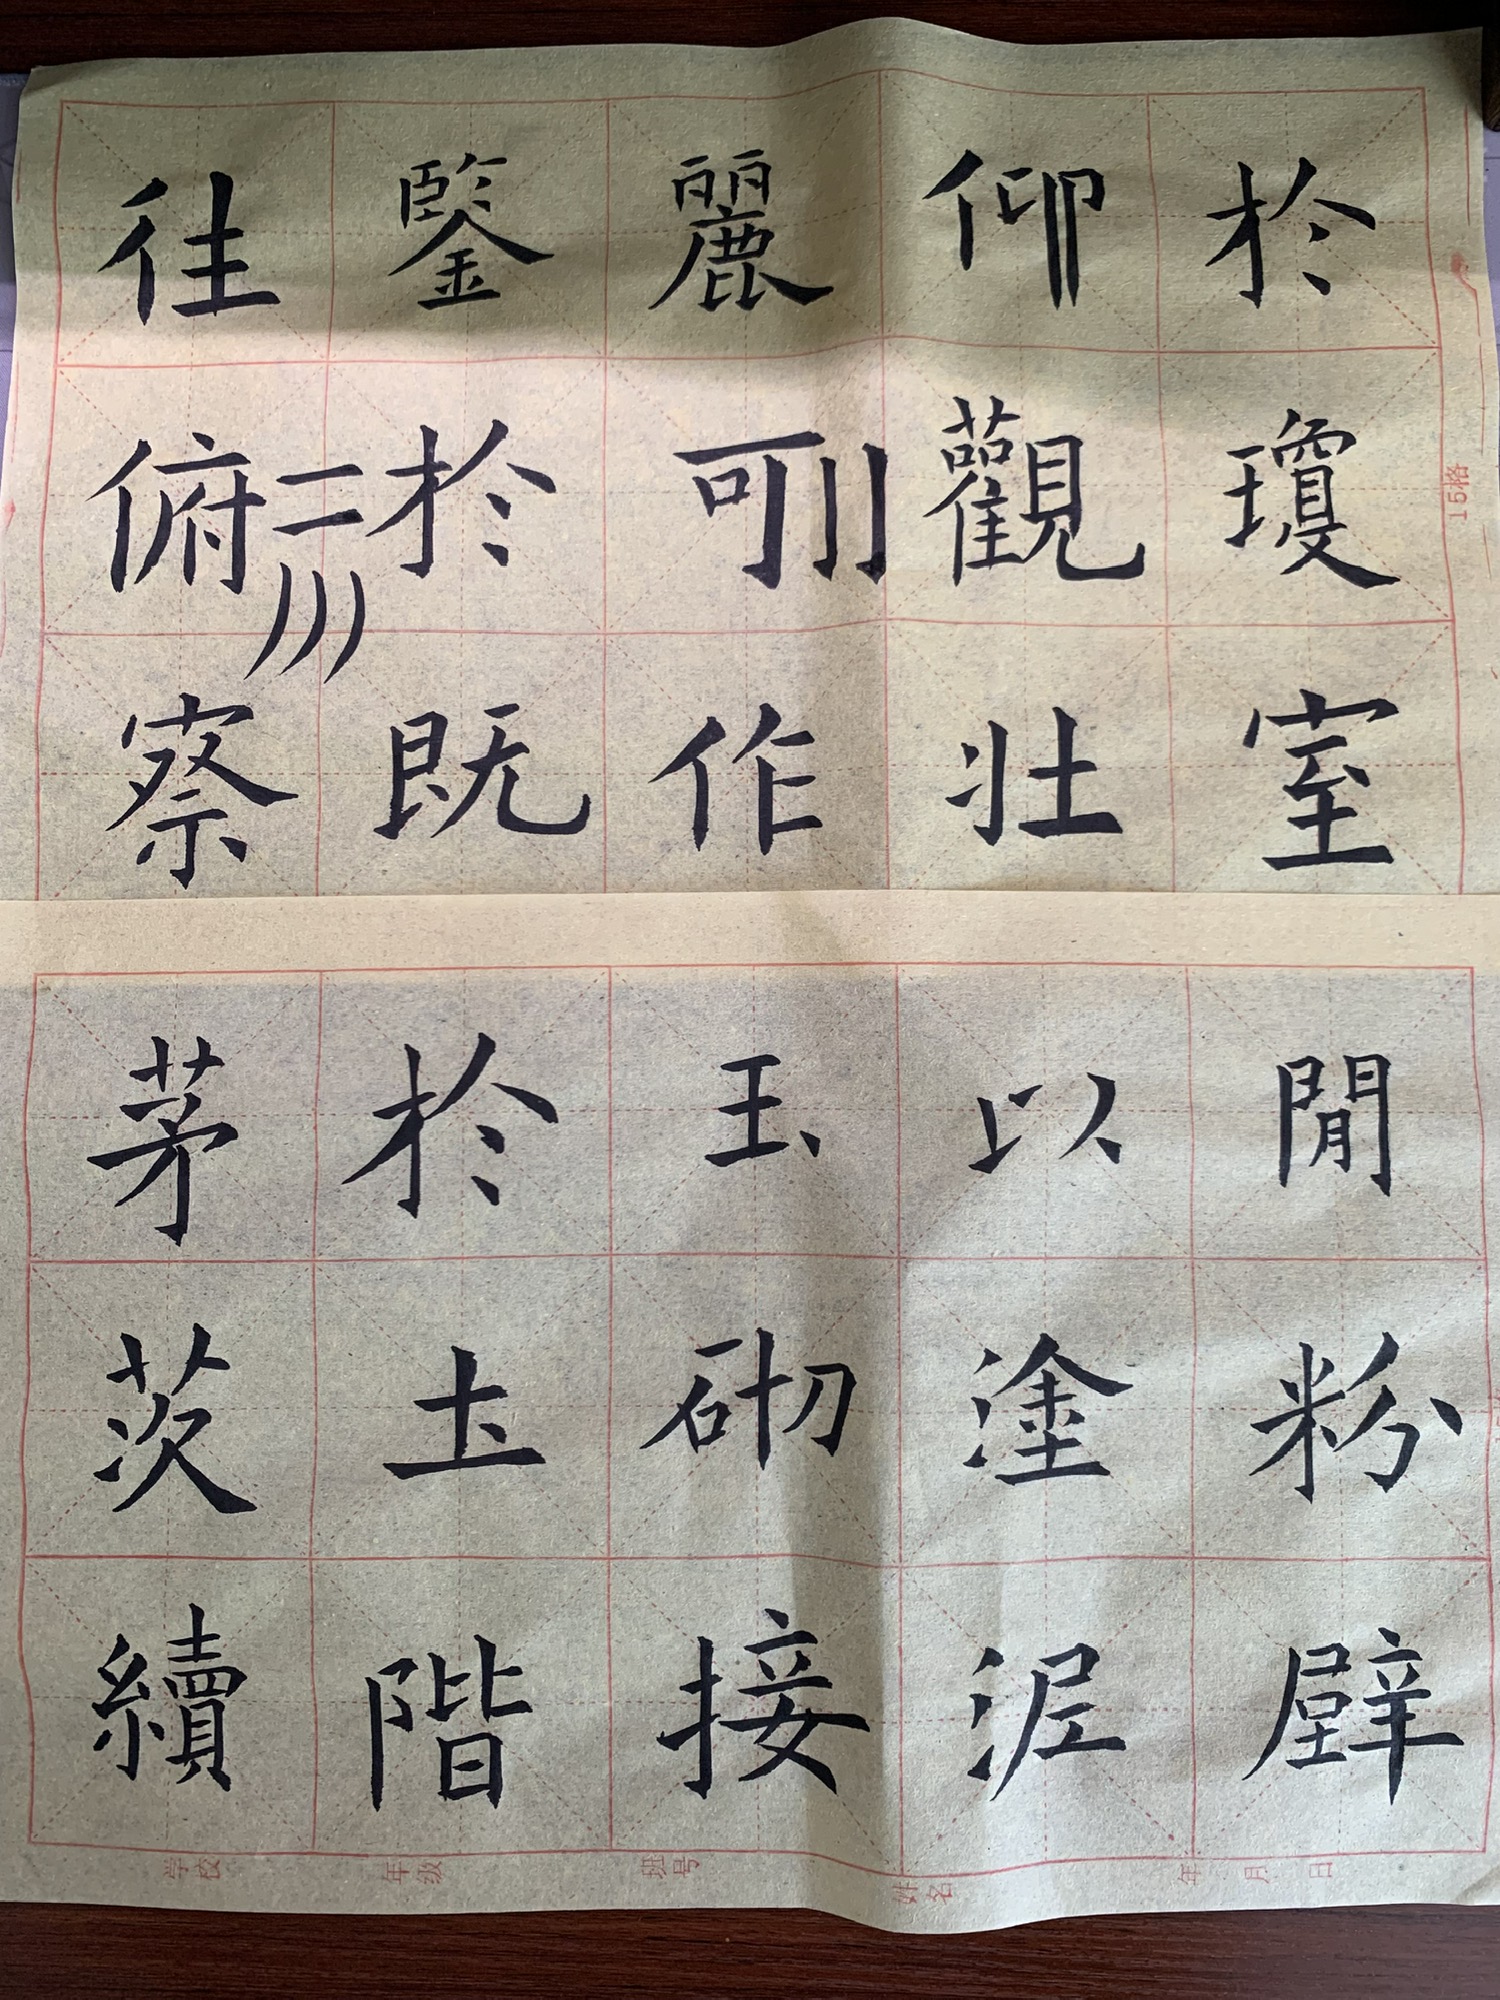 於瓊室
仰觀壯
麗可作
鑒於既
往俯察
閒粉壁
以塗泥
玉砌接
於土階
茅茨續
15格
学校 年级 班号 姓名 年 月 日